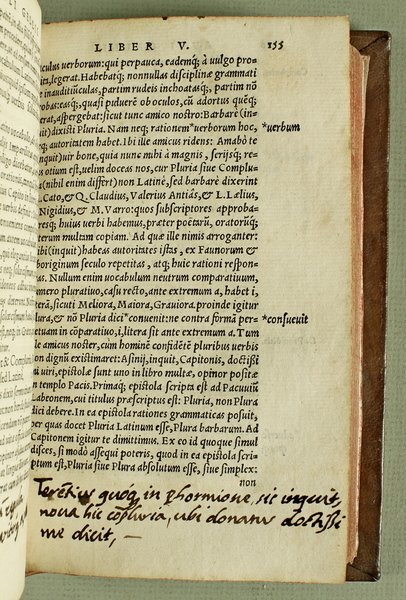 LIBER V. 155
iculus verborum: qui perpauca, eademq; à uulgo pro-
ita, legerat. Habebatq; nonnullas disciplinæ grammati
e inauditiunculas, partim rudeis inchoatasq;, partim nō
robas: easq;, quasi puluerē ob oculos, cū adortus quēq;
uerat, aspergebat: sicut tunc amico nostro: Barbarè (in-
uit) dixisti Pluria. Nam neq; rationem* uerborum hoc,
q; autoritatem habet. Ibi ille amicus ridens: Amabò te
inquit) uir bone, quia nunc mihi à magnis, serijsq; re-
us otium est, uelim doceas nos, cur Pluria siue Complu-
a (nihil enim differt) non Latinè, sed barbarè dixerint
. Cato, & Q. Claudius, Valerius Antiās, & L. Lælius,
Nigidius, & M. Varro: quos subscriptores approba-
resq; huius uerbi habemus, præter poëtarū, oratorūq;
terum multam copiam. Ad quæ ille nimis arroganter:
ibi (inquit) habeas autoritates istas, ex Faunorum &
boriginum seculo repetitas, atq; huic rationi respon-
as. Nullum enim uocabulum neutrum comparatiuum,
mero plurativo, casu recto, ante extremum a, habet i,
terā, sicuti Meliora, Maiora, Grauiora. proinde igitur
lura, & nō Pluria dici* conuenit: ne contra formā per-
etuam in cōparatiuo, i, litera sit ante extremum a. Tum
le amicus noster, cum hominē confidētē pluribus uerbis
on dignū existimaret: Asinij, inquit, Capitonis, doctissi
ni uiri, epistolæ sunt uno in libro multæ, opinor positæ
n templo Pacis. Primaq; epistola scripta est ad Pacuuiū
Labeonem, cui titulus præscriptus est: Pluria, non Plura
dici debere. In ea epistola rationes grammaticas posuit,
per quas docet Pluria Latinum esse, Plura barbarum. Ad
Capitonem igitur te dimittimus. Ex eo id quoque simul
disces, si modò assequi poteris, quod in ea epistola scri-
ptum est, Pluria siue Plura absolutum esse, siue simplex:
non
*verbum
*consueuit
Terētius quóq; in phormione, sic inquit,
noua hic cōpluria, ubi donatus doctissi
me dicit, —